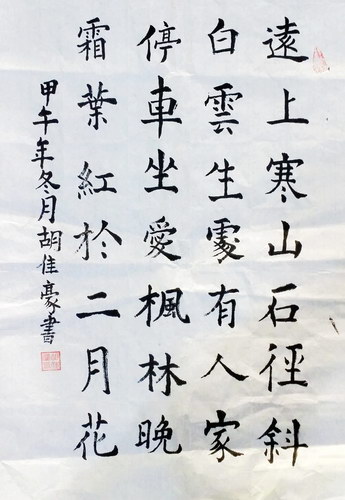 遠上寒山石徑斜
白雲生處有人家
停車坐愛楓林晚
霜葉紅於二月花
甲午年冬月胡佳豪書